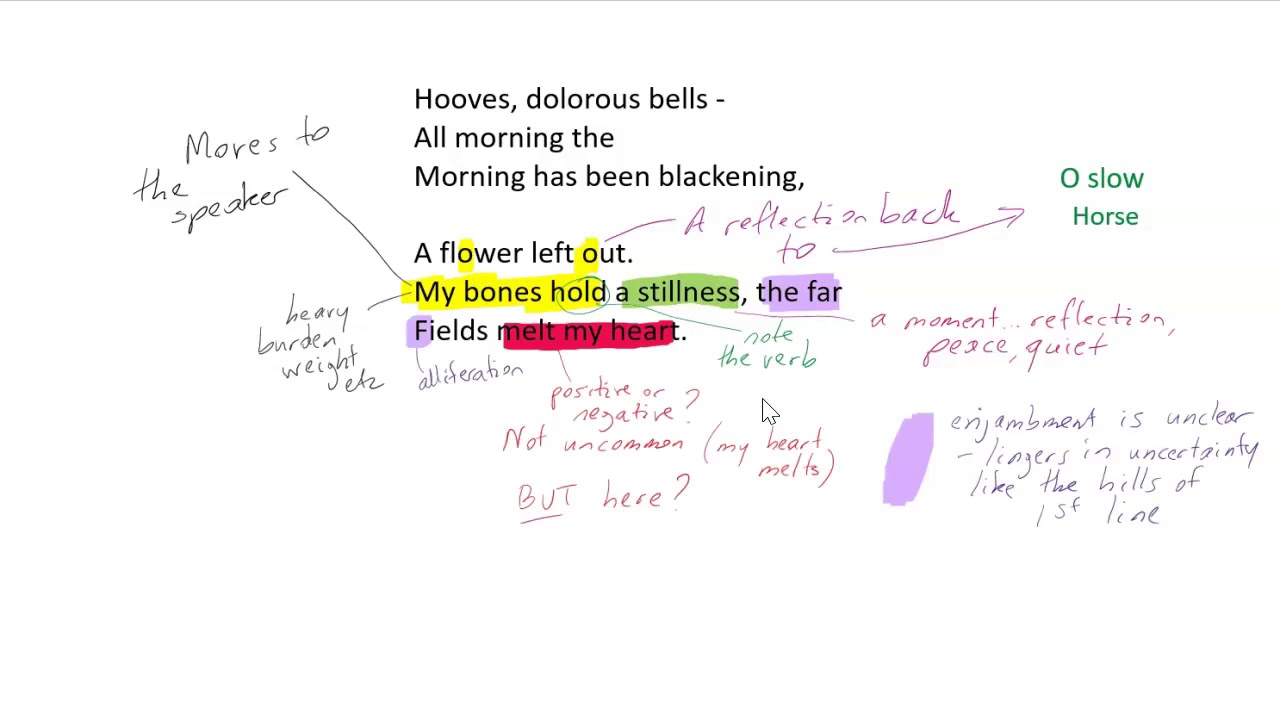 Hooves, dolorous bells -
All morning the
Morning has been blackening,
Moves to
the
speaker
O slow
Horse
A reflection back
to
A flower left out.
My bones hold a stillness, the far
Fields melt my heart.
heavy
burden
weight
etc
alliteration
note
the verb
a moment... reflection,
peace, quiet
positive or
negative?
Not uncommon (my heart
melts)
BUT here?
enjambment is unclear
- lingers in uncertainty
like the hills of
1st line